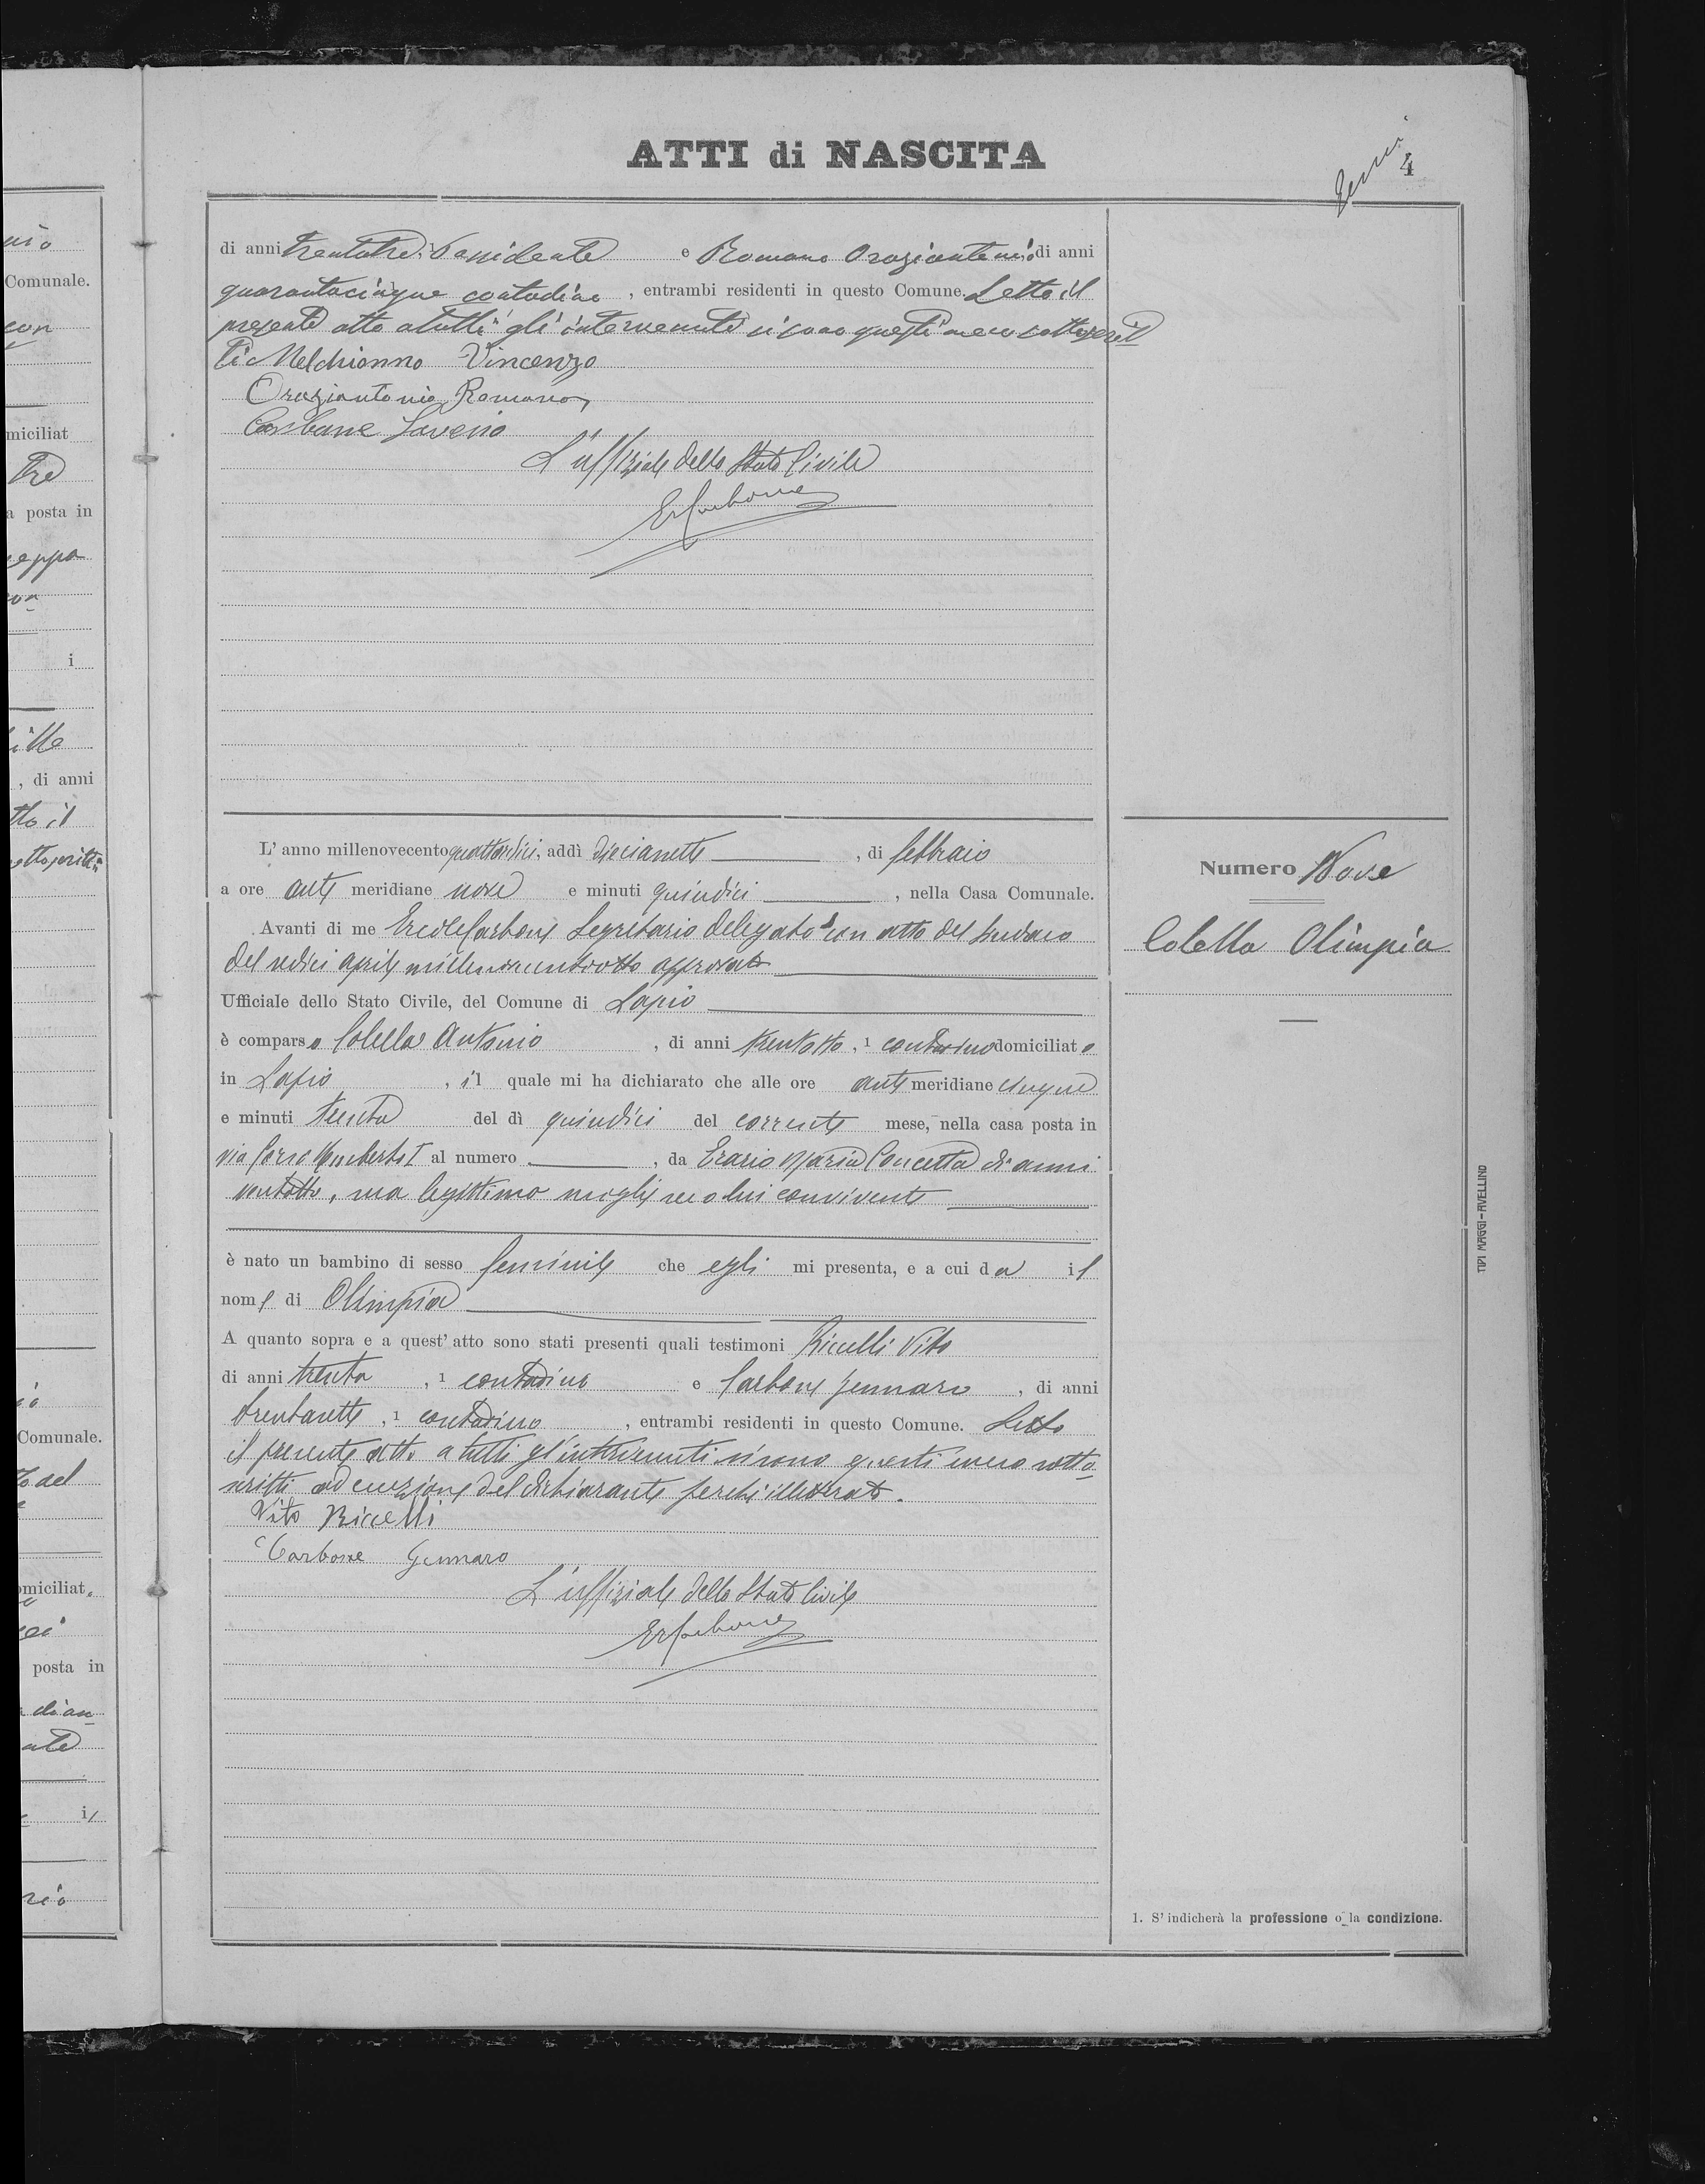 ATTI di NASCITA
4
di anni trentatre, 1 possidente e Romano Oraziantonio di anni
quarantacinque contadino, entrambi residenti in questo Comune. Letto il
presente atto a tutti gli intervenuti si sono questi meco sottoscrit
ti Melchionno Vincenzo
Oraziantonio Romano
Carbone Saverio
L'uffiziale dello Stato Civile
ErCarbone
L'anno millenovecentoquattordici, addì diecianette, di febbraio
a ore ante meridiane nove e minuti quindici, nella Casa Comunale.
Avanti di me Ercole Carbone Segretario delegato con atto del Sindaco
del sedici aprile millenovecentootto approvato
Ufficiale dello Stato Civile, del Comune di Lapio
è comparso Colella Antonio, di anni trentotto, 1 contadino domiciliato
in Lapio, il quale mi ha dichiarato che alle ore ante meridiane cinque
e minuti trenta del dì quindici del corrente mese, nella casa posta in
via Corso Umberto I al numero, da Erario Maria Concetta di anni
ventotto, sua legittima moglie seco lui convivente
è nato un bambino di sesso feminile che egli mi presenta, e a cui da il
nome di Olimpia
A quanto sopra e a quest'atto sono stati presenti quali testimoni Riccelli Vito
di anni trenta, 1 contadino e Carbone Gennaro, di anni
trentasette, 1 contadino, entrambi residenti in questo Comune. Letto
il presente atto a tutti gl'intervenuti si sono questi meco sotto
scritti ad eccezione del dichiarante perchè illetterato.
Vito Riccelli
Carbone Gennaro
L'uffiziale dello Stato Civile
ErCarbone
Numero Nove
Colella Olimpia
1. S'indicherà la professione o la condizione.
TIPI MAGGI-AVELLINO
nio
Comunale.
con
miciliat
tre
a posta in
eppa
con
i
ille
, di anni
tto il
ttoscritti
Comunale.
to del
omiciliat
posta in
di an
nte
il
rio